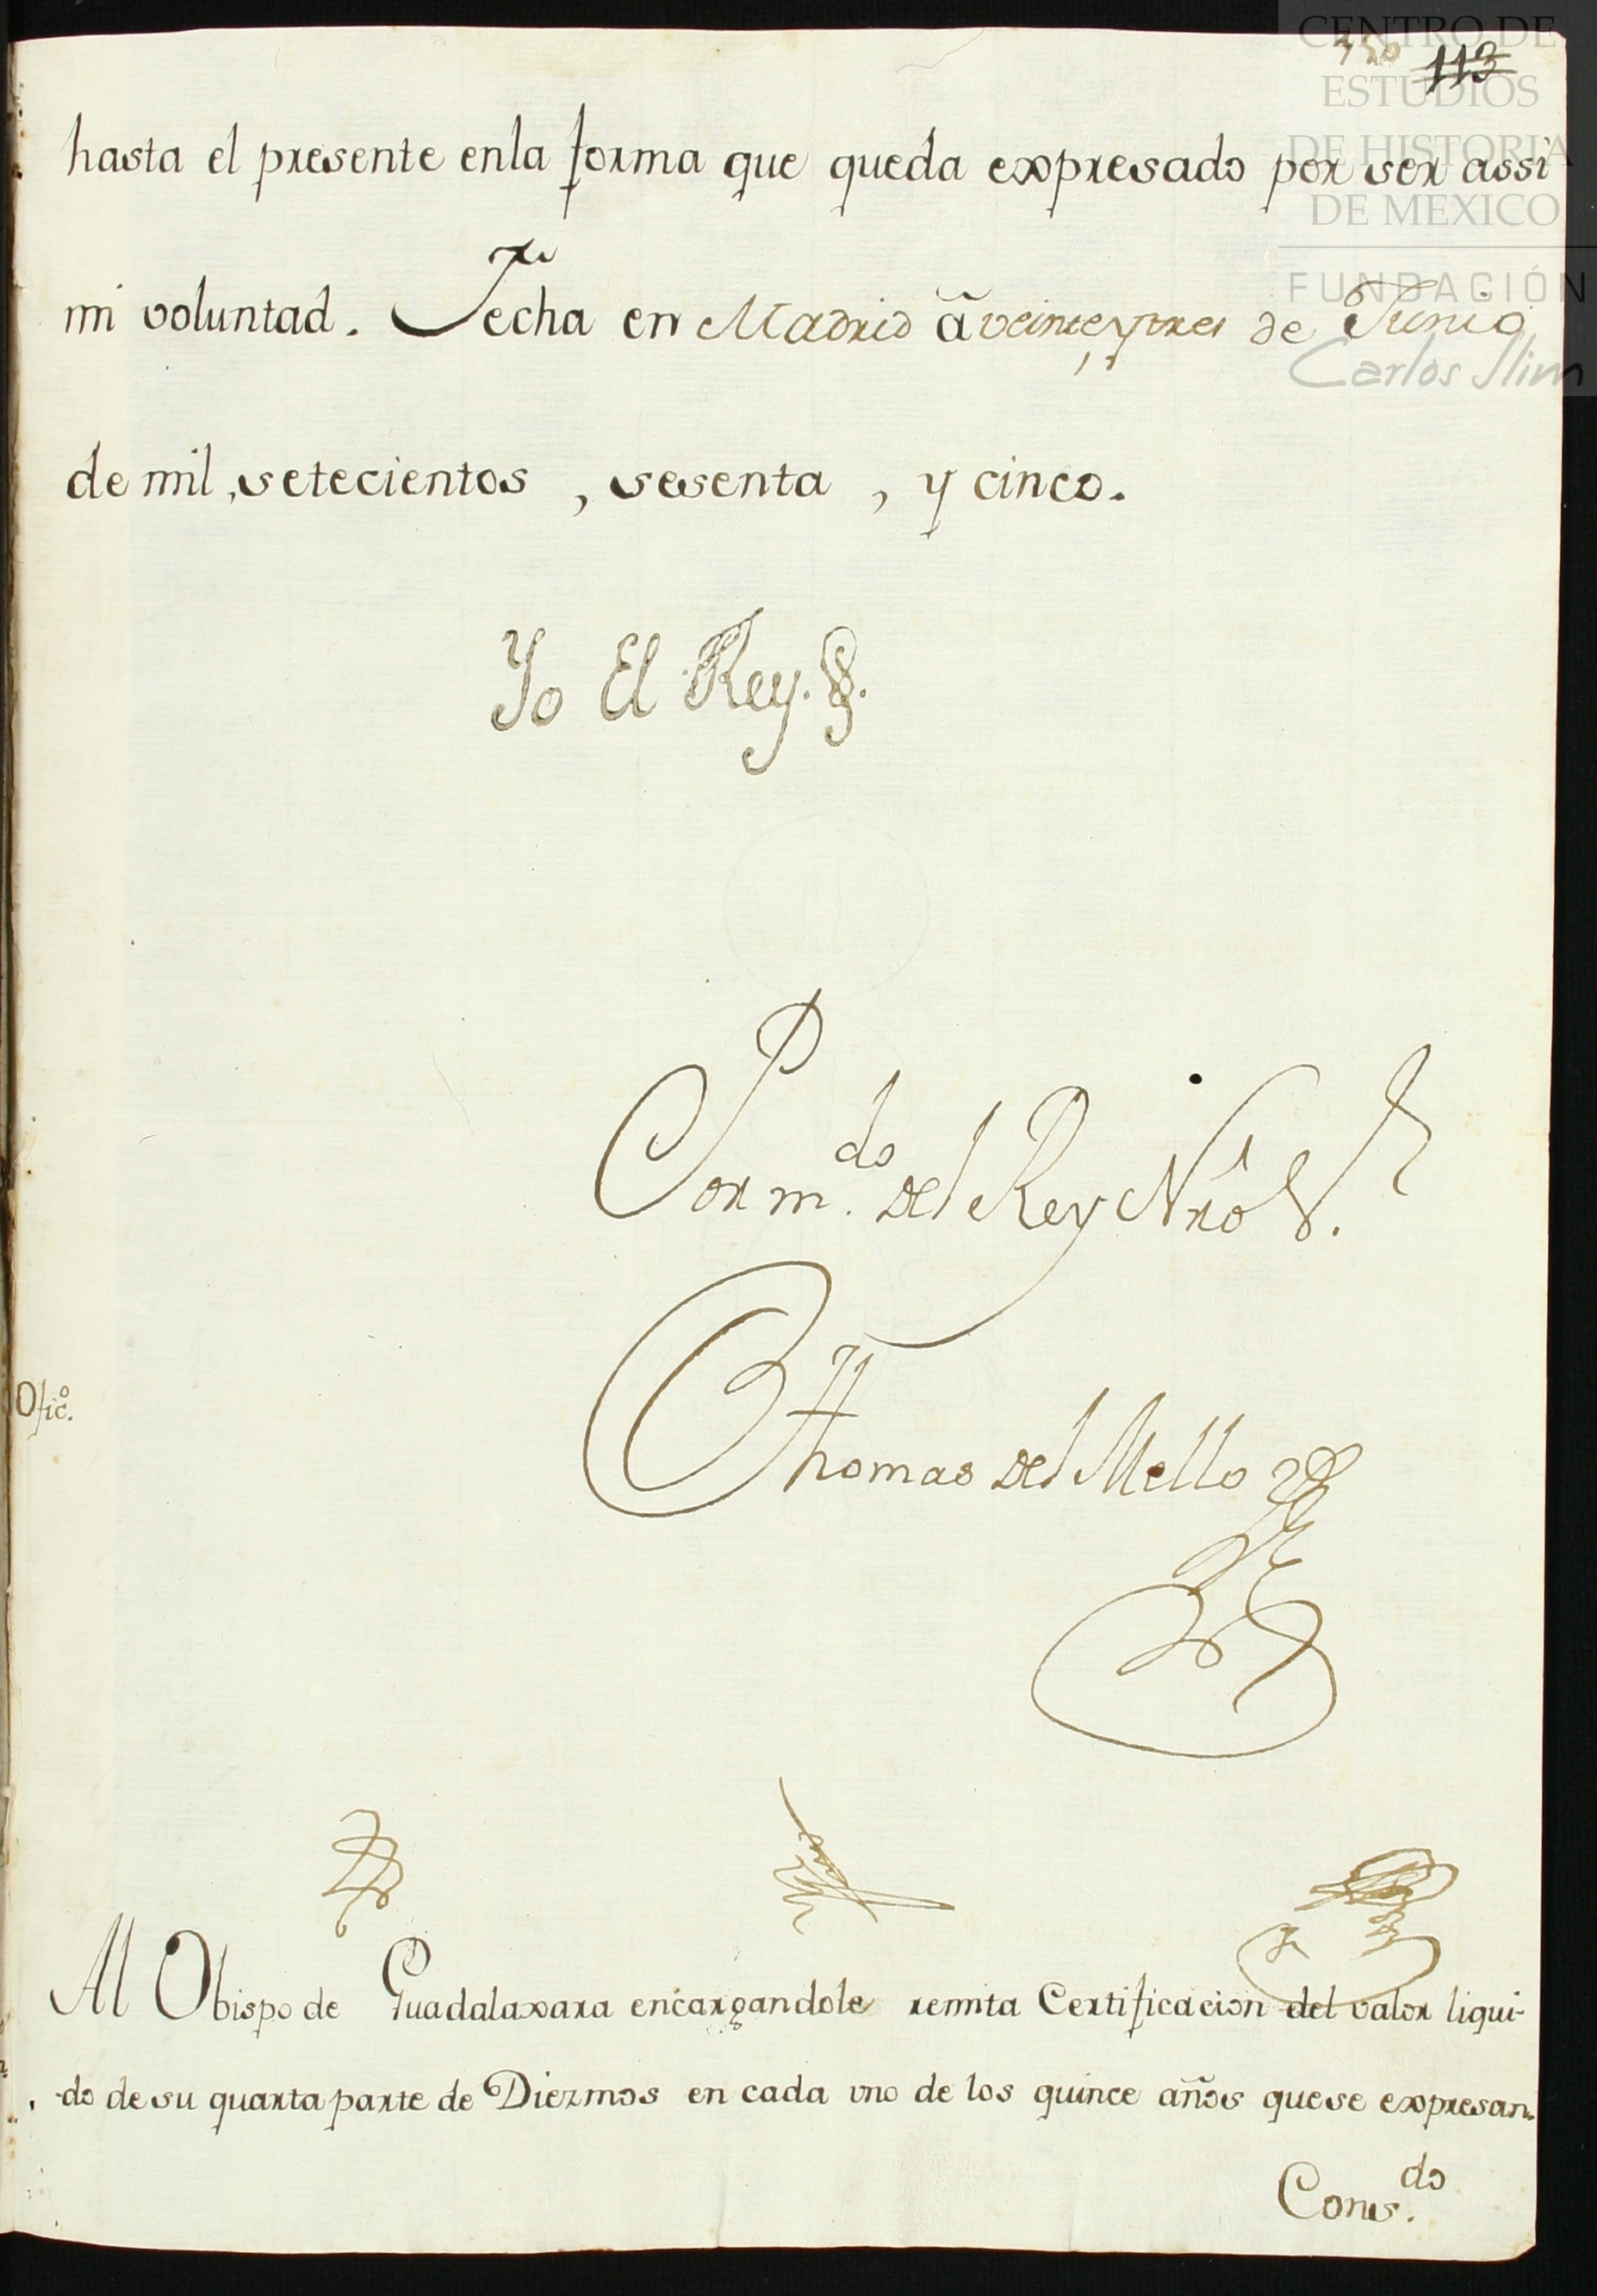 CENTRO DE
ESTUDIOS
DE HISTORIA
DE MEXICO
FUNDACIÓN
Carlos Slim
113
hasta el presente enla forma que queda expresado por ser assi
mi voluntad. Fecha en Madrid à veinte y tres de Junio
de mil, setecientos, sesenta, y cinco.
Yo El Rey.
Por m.do del Rey Nrô S.r
Thomas del Mello
Ofic.o
Al Obispo de Guadalaxara encargandole remita Certificacion del valor liqui-
-do de su quarta parte de Diezmos en cada uno de los quince años quese expresan.
Cons.do